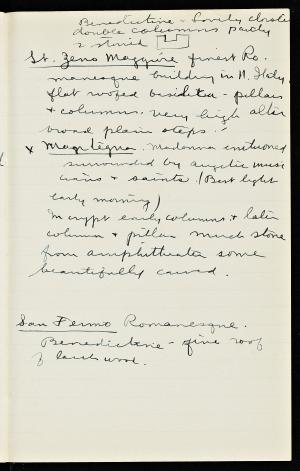 Benedictine - Lovely cloister
double columns partly
2 storied
St. Zeno Maggiore finest Ro-
manesque building in N. Italy.
flat roofed basilica - pillars
& columns. very high altar
broad plain steps.
x Mantegna. Madonna enthroned
surrounded by angelic musi
cians & saints. (Best light
early morning)
In crypt early columns & later
column & pillar much stone
from amphitheater some
beautifully carved.
San Fermo Romanesque.
Benedictine - fine roof
of larch wood.